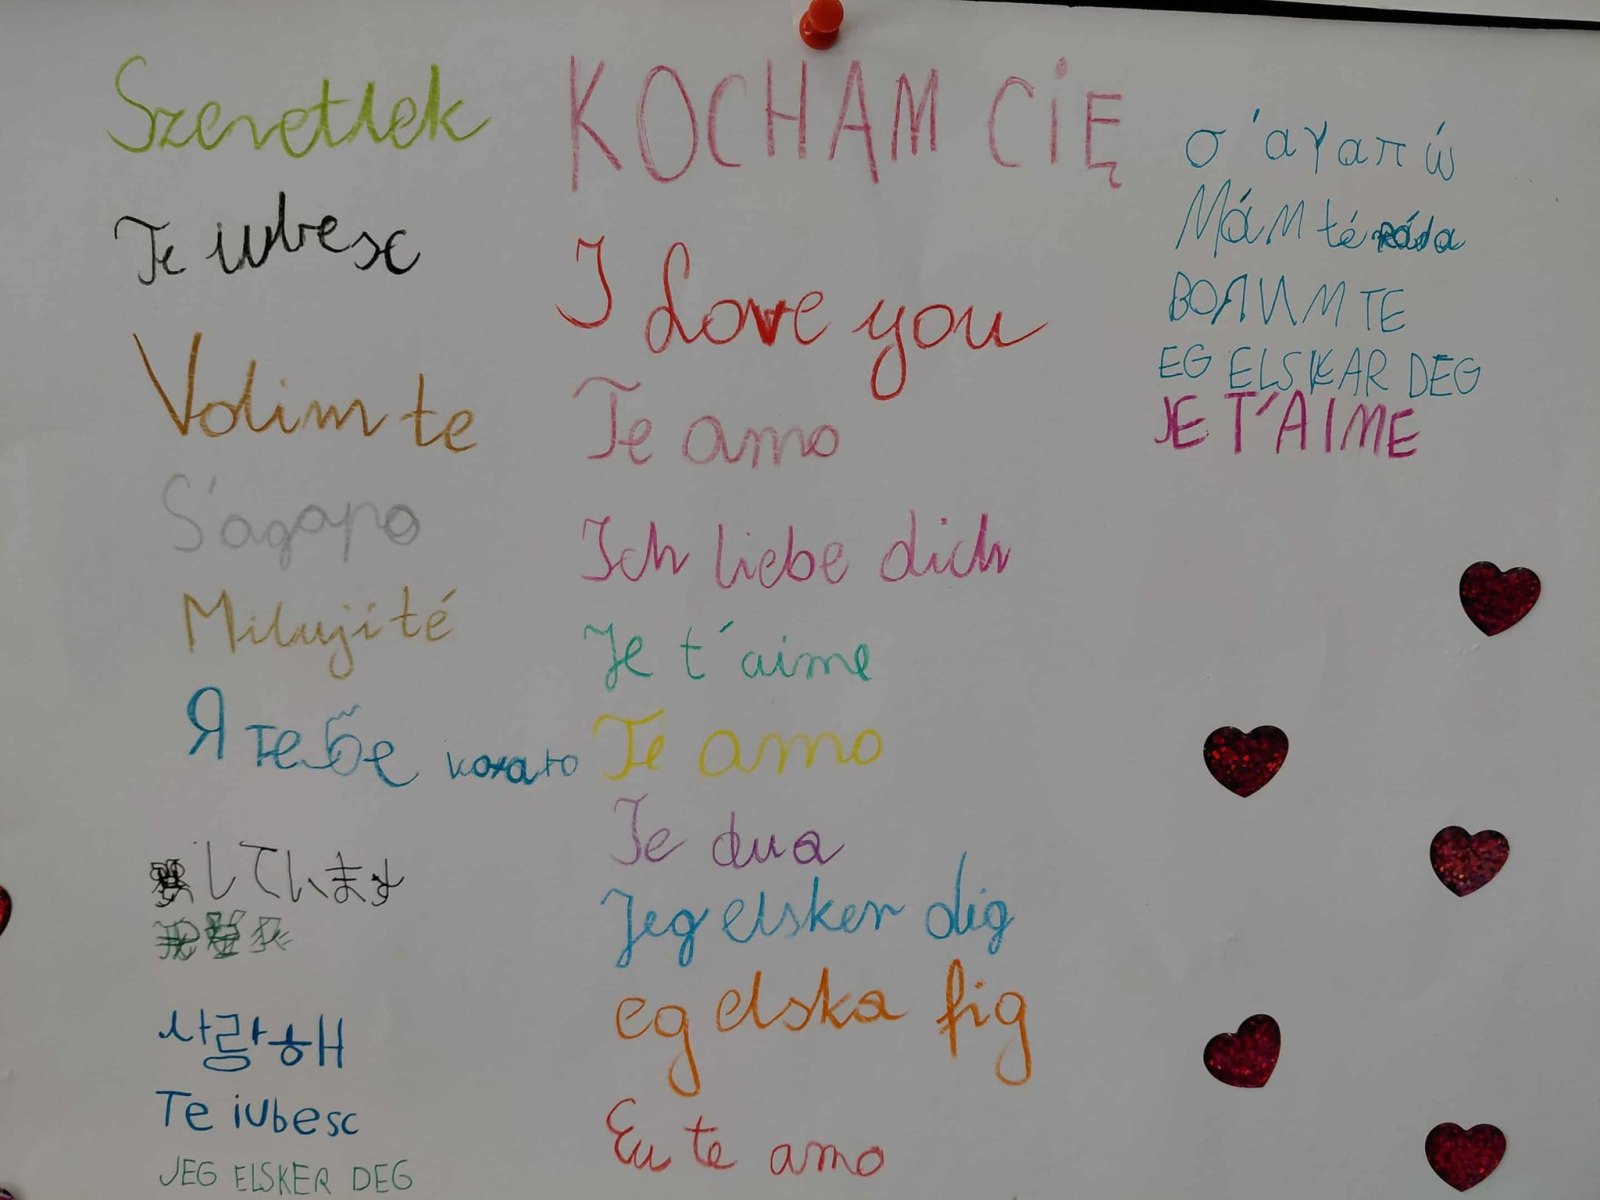 Szeretlek
Te iubesc
Volim te
S'agapo
Miluji té
Я тебе кохаю
しています
사랑해
Te iubesc
JEG ELSKER DEG
KOCHAM CIĘ
I Love you
Te amo
Ich liebe dich
Je t'aime
Te amo
Te dua
Jeg elsker dig
eg elska þig
Eu te amo
σ'αγαπώ
Mám té ráda
ВОЛИМ ТЕ
EG ELSKAR DEG
JE T'AIME